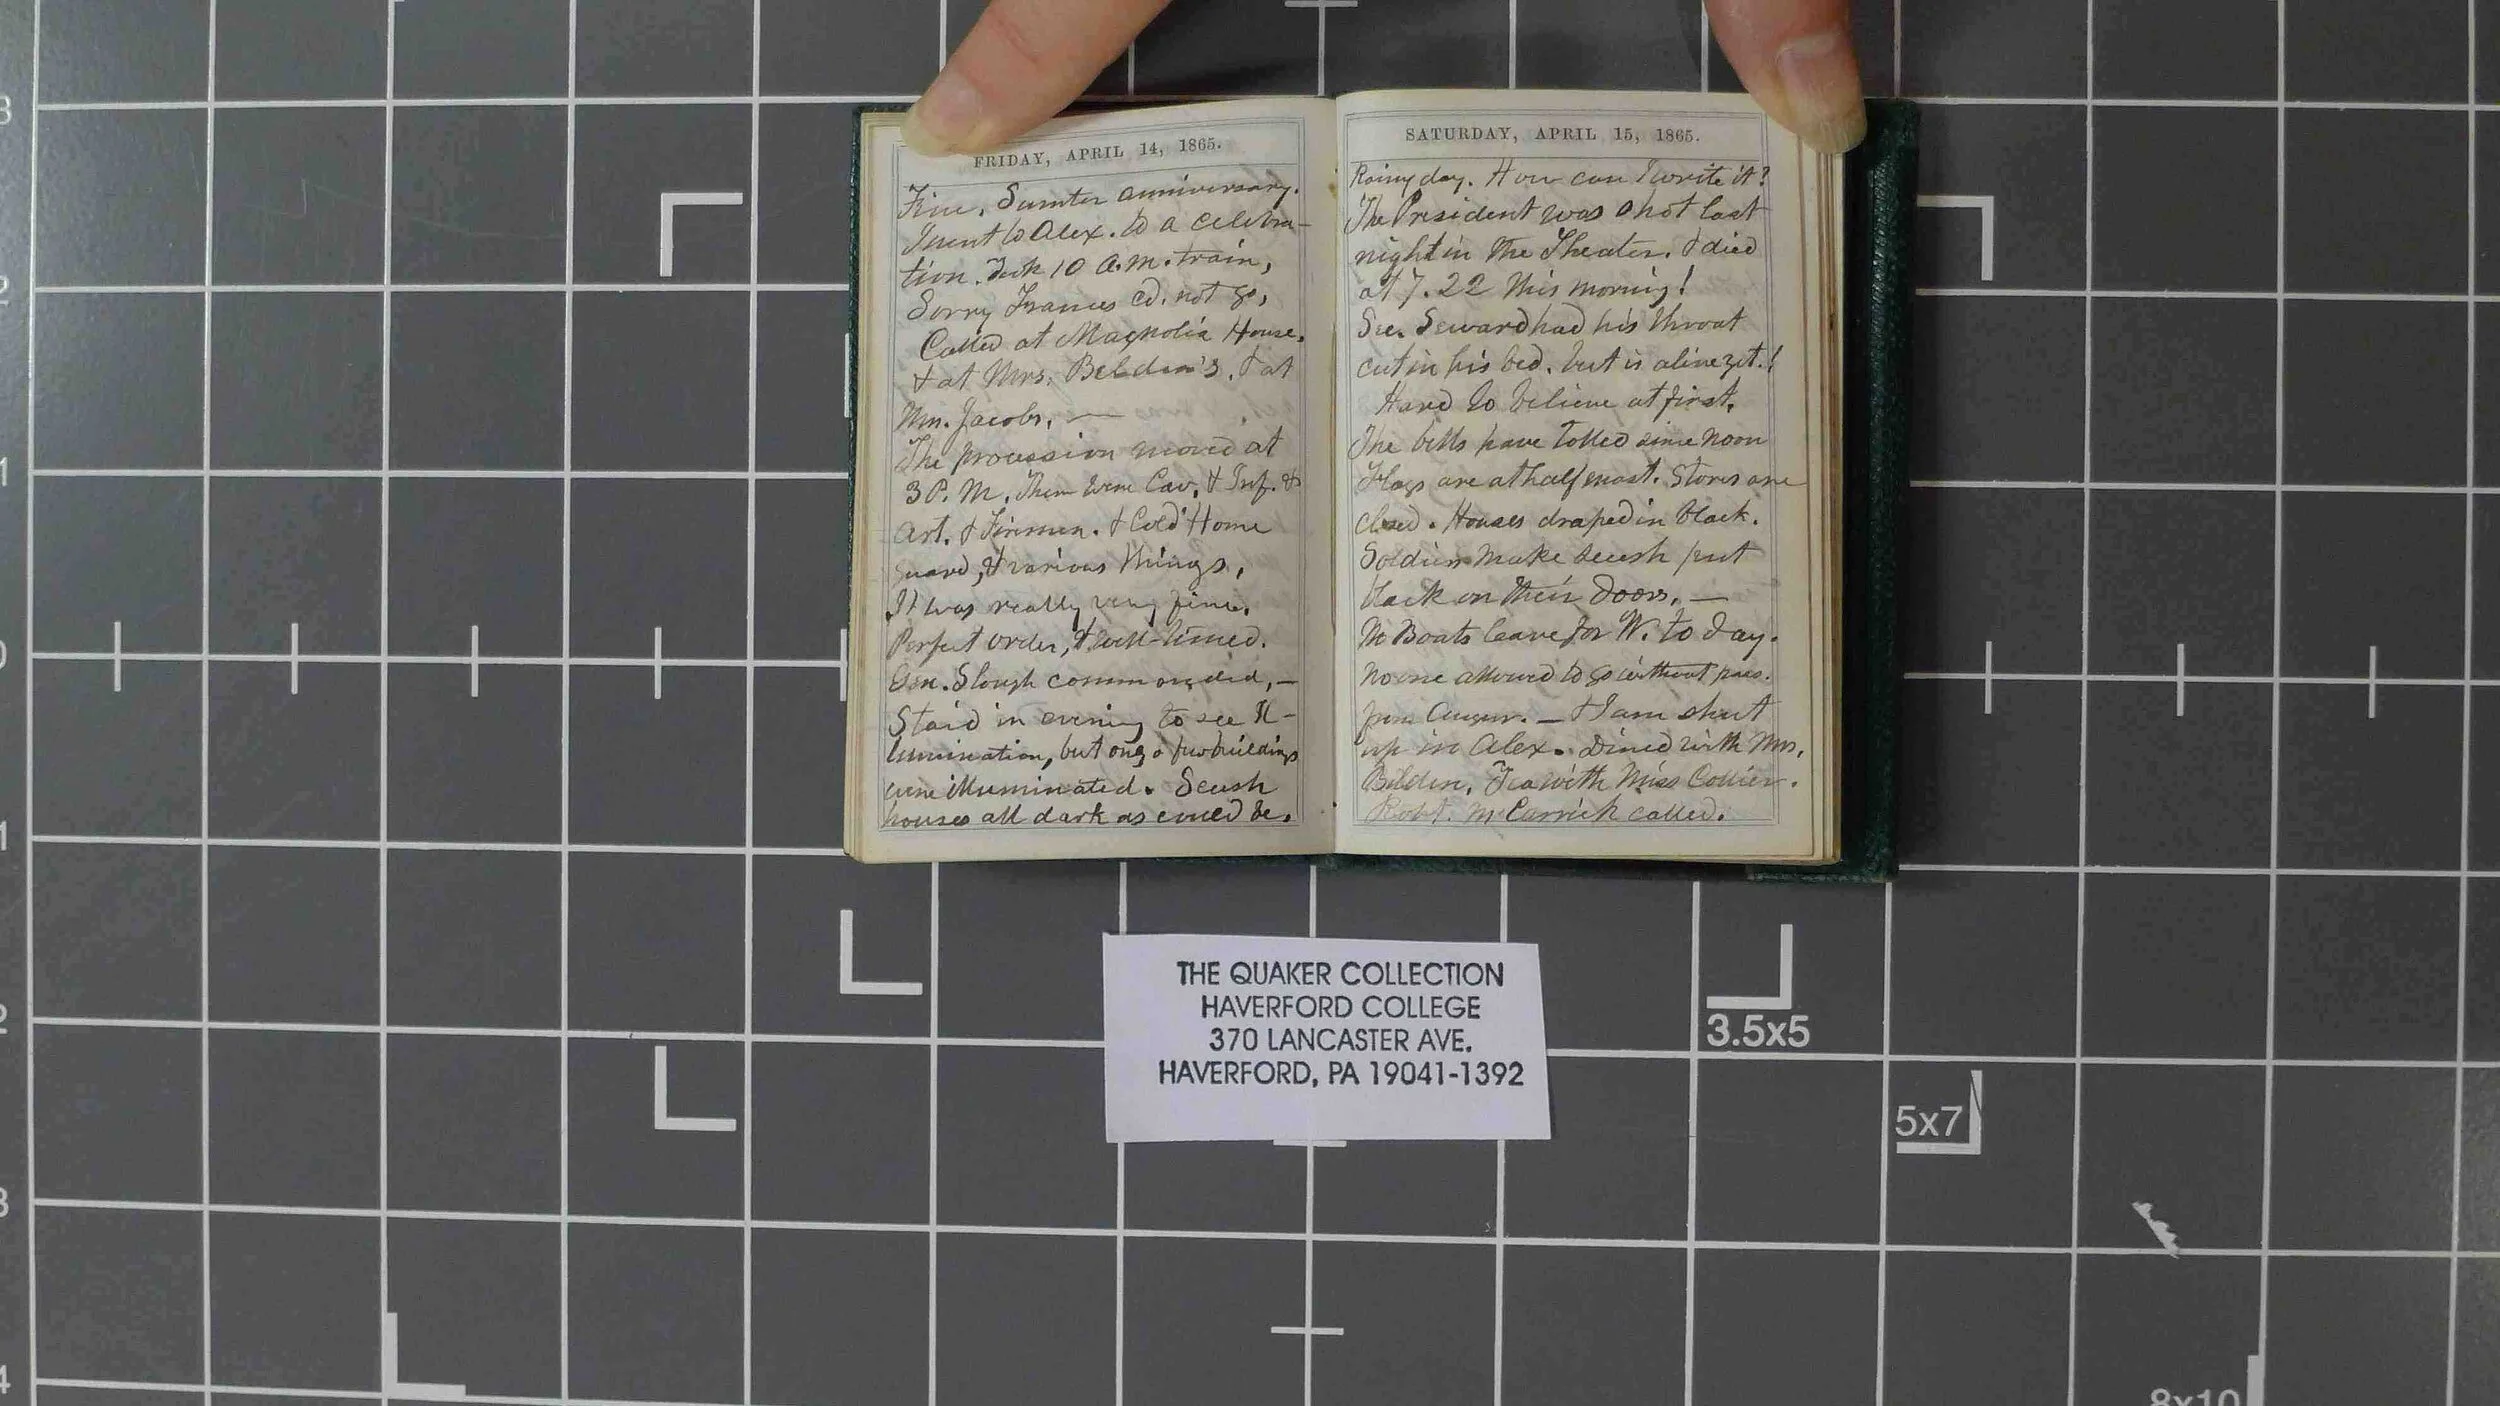 FRIDAY, APRIL 14, 1865.
Fine. Sumter anniversary.
I went to Alex. to a celebra-
tion. Took 10 A.M. train,
Sorry Frances cd. not go,
Called at Magnolia House.
& at Mrs. Belden's. & at
Mrs. Jacobs. —
The procession moved at
3 P.M. There were Cav. & Inf. &
Art. & Firemen. & Col'd Home
Guard, & various things,
It was really very fine.
Perfect order, & well-timed.
Gen. Slough commanded, —
Staid in evening to see Il-
lumination, but only a few buildings
were illuminated. Secesh
houses all dark as could be.
SATURDAY, APRIL 15, 1865.
Rainy day. How can I write it?
The President was shot last
night in the Theater. & died
at 7.22 this morning!
Sec. Seward had his throat
cut in his bed. but is alive yet.!
Hard to believe at first.
The bells have tolled since noon
Flags are at half mast. Stores are
closed. Houses draped in black.
Soldiers make secesh put
black on their doors. —
No Boats leave for W. to day.
No one allowed to go without pass.
from Augur. — & I am shut
up in Alex. Dined with Mrs.
Belden. Tea with Miss Collier.
Robt. McCarrick called.
THE QUAKER COLLECTION
HAVERFORD COLLEGE
370 LANCASTER AVE.
HAVERFORD, PA 19041-1392
3
2
1
0
1
2
3
4
3.5x5
5x7
8x10